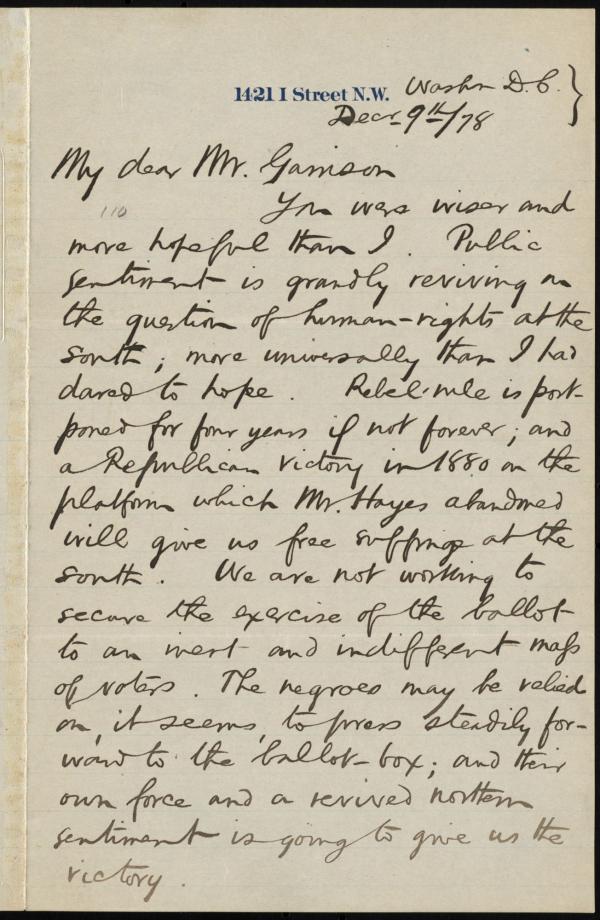 1421 I Street N.W. Washn D.C.
Decr. 9th/78
My dear Mr. Garrison
110
You were wiser and
more hopeful than I. Public
sentiment is grandly reviving on
the question of human-rights at the
south; more universally than I had
dared to hope. Rebel-rule is post-
poned for four years if not forever; and
a Republican victory in 1880 on the
platform which Mr. Hayes abandoned
will give us free suffrage at the
south. We are not working to
secure the exercise of the ballot
to an inert and indifferent mass
of voters. The negroes may be relied
on, it seems, to press steadily for-
ward to the ballot-box; and their
own force and a revived northern
sentiment is going to give us the
victory.